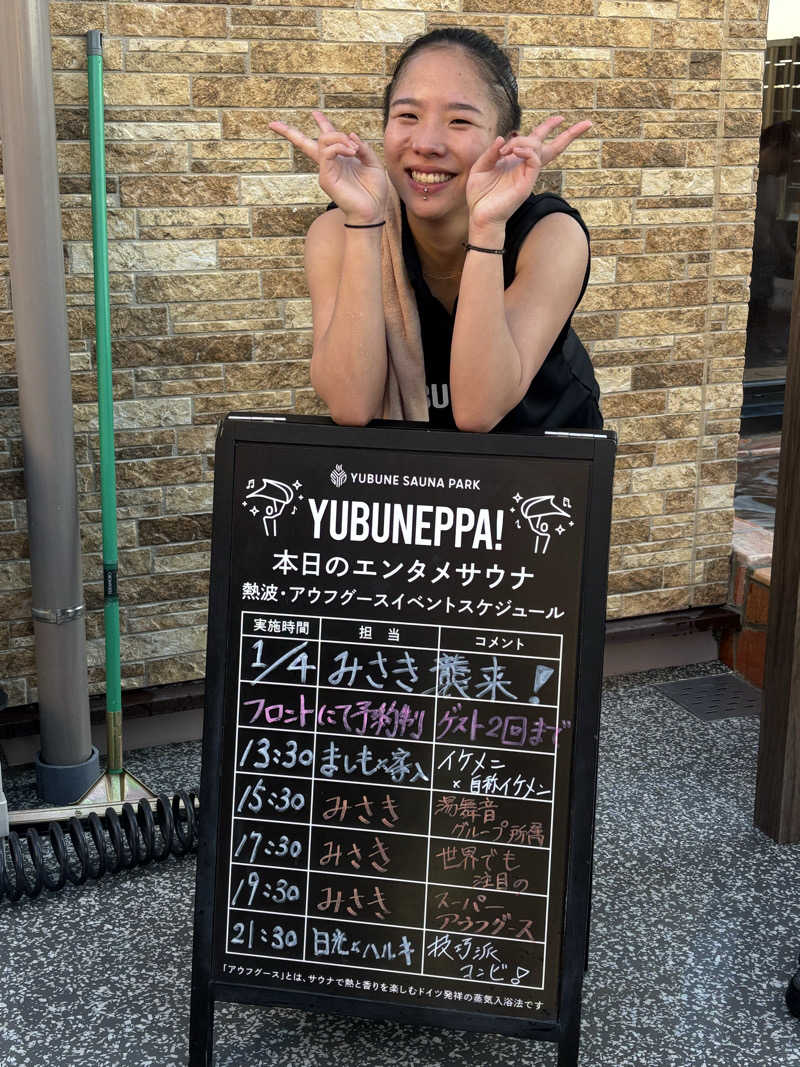 BU
YUBUNE SAUNA PARK
YUBUNEPPA!
本日のエンタメサウナ
熱波・アウフグースイベントスケジュール
実施時間 担当 コメント
1/4 みさき 襲来!
フロントにて予約制 ゲスト2回まで
13:30 ましも×家入 イケメン
×自称イケメン
15:30 みさき 湯舞音
グループ所属
17:30 みさき 世界でも
注目の
19:30 みさき スーパー
アウフグース
21:30 日光×ハルキ 技巧派
コンビ!
「アウフグース」とは、サウナで熱と香りを楽しむドイツ発祥の蒸気入浴法です